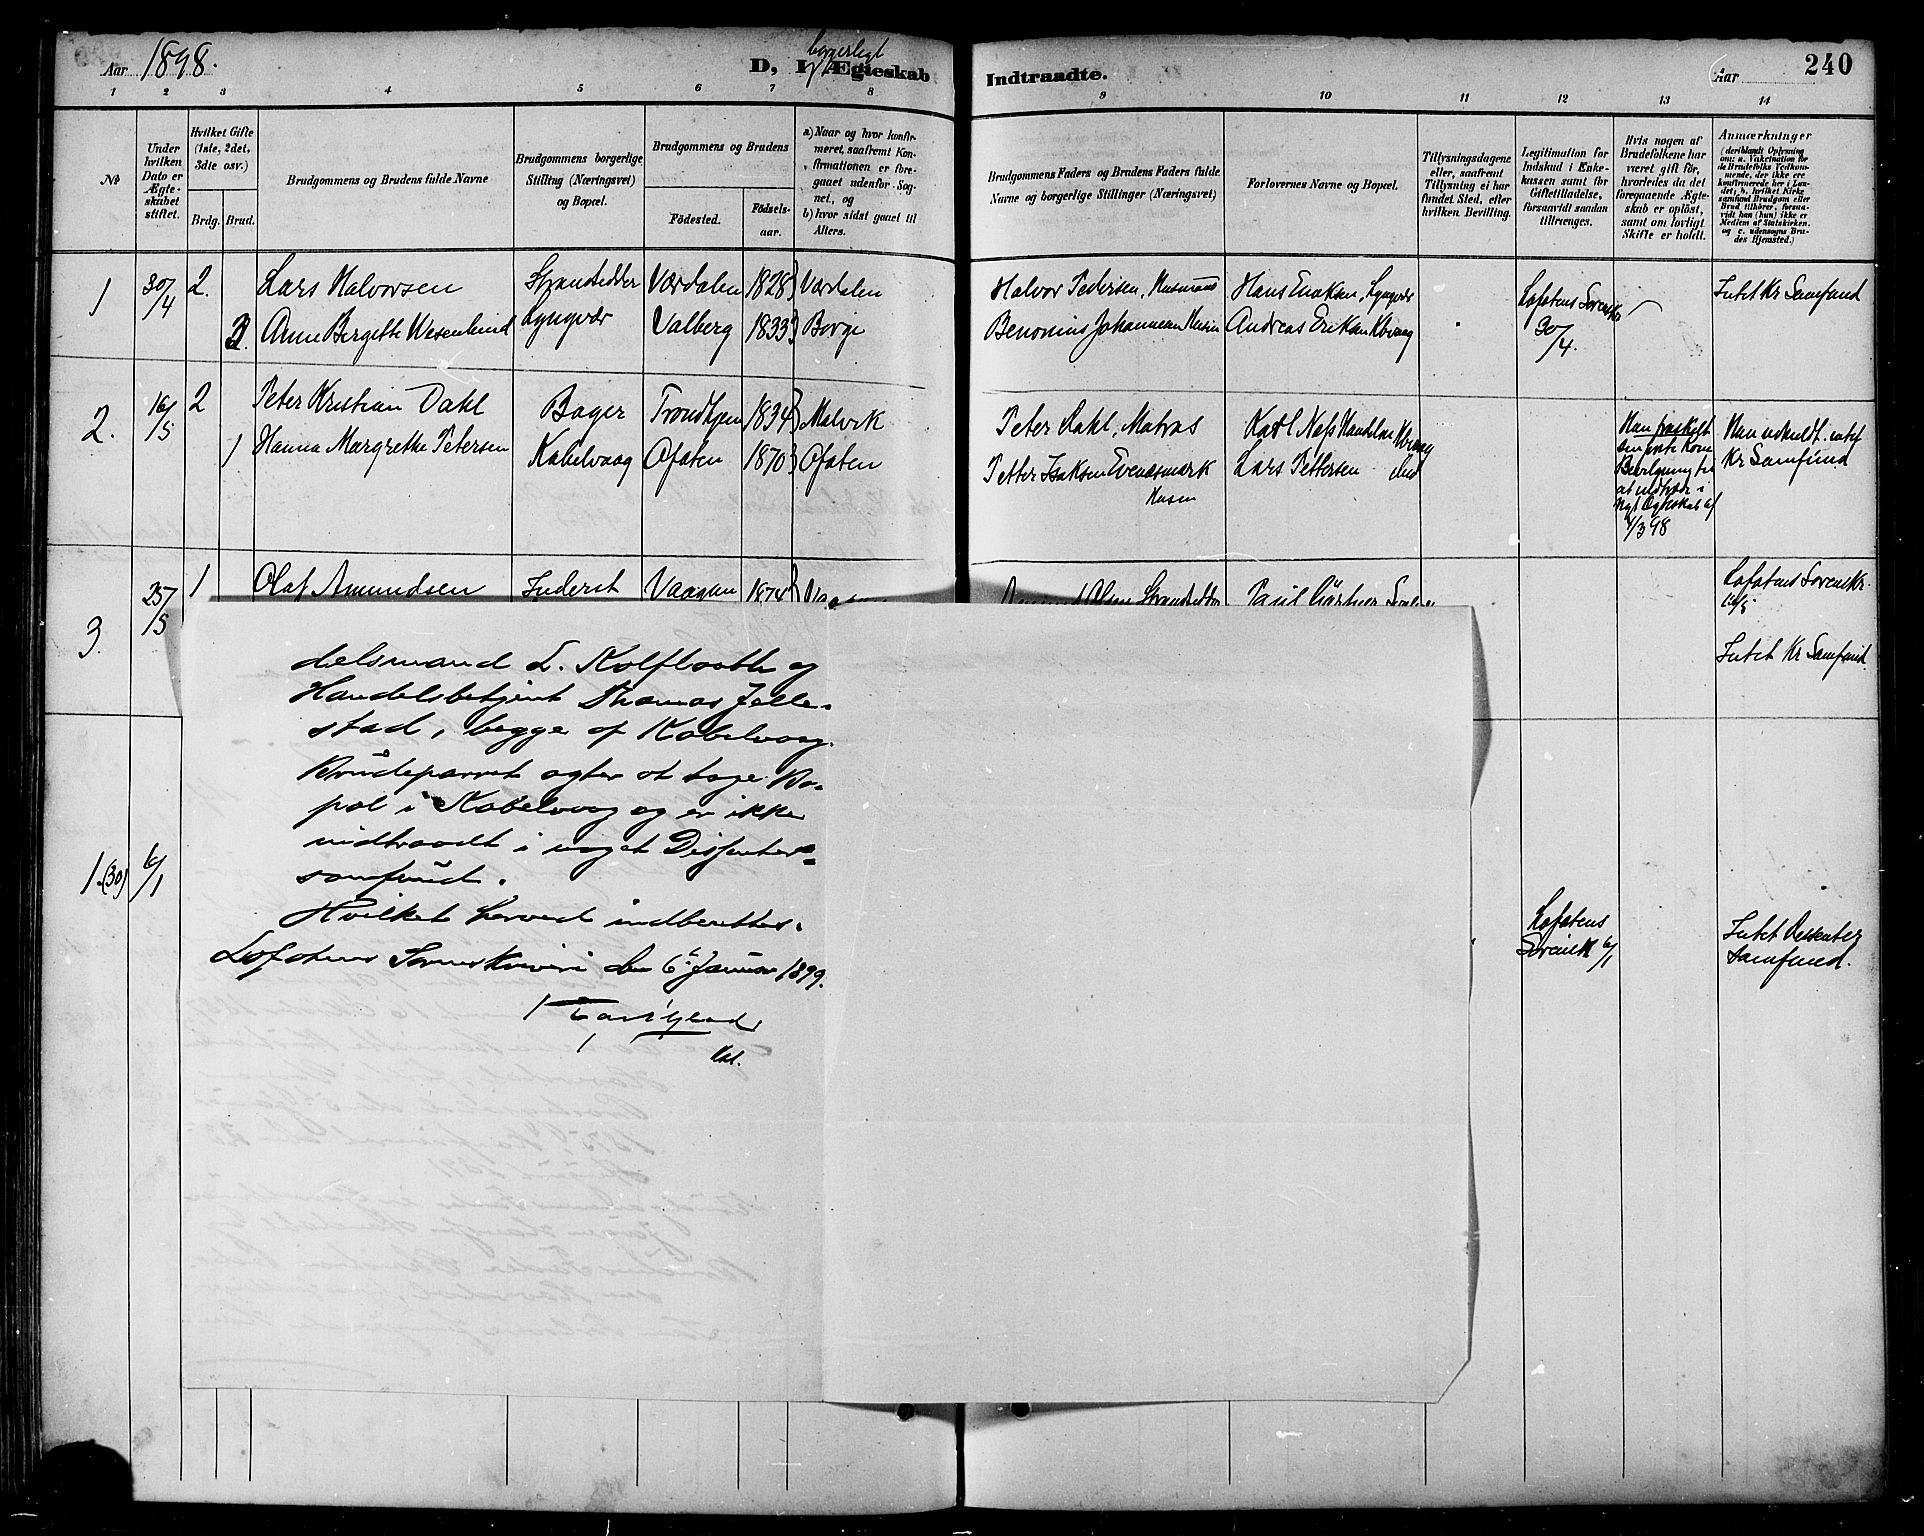 Aar 1898.
borgerligt
D, I Ægteskab
Indtraadte.
Aar
240
1 2 3 4 5 6 7 8 9 10 11 12 13 14
No
Under hvilken Dato er Ægteskabet stiftet.
Hvilket Gifte (1ste, 2det, 3die osv.)
Brdg. Brud.
Brudgommens og Brudens fulde Navne
Brudgommens borgerlige Stilling (Næringsvei) og Bopæl.
Brudgommens og Brudens
Fødested. Fødselsaar.
a) Naar og hvor konfirmeret, saafremt Konfirmationen er foregaaet udenfor Sognet, og
b) hvor sidst gaaet til Alters.
Brudgommens Faders og Brudens Faders fulde Navne og borgerlige Stillinger (Næringsvei)
Forlovernes Navne og Bopæl.
Tillysningsdagene eller, saafremt Tillysning ei har fundet Sted, efter hvilken Bevilling.
Legitimation for Indskud i Enkekassen samt for Giftetilladelse, forsaavidt saadan tiltrænges.
Hvis nogen af Brudefolkene har været gift før, hvorledes da det foregaaende Ægteskab er opløst, samt om lovligt Skifte er holdt.
Anmærkninger (deriblandt Oplysning om: a. Vakcination for de Brudefolks Vedkommende, der ikke ere konfirmerede her i Landet; b. hvilket Kirkesamfund Brudgom eller Brud tilhører, forsaavidt han (hun) ikke er Medlem af Statskirken, og c. udensogns Brudes Hjemsted.)
1 30/4 2. Lars Halvorsen Strandsidder Værdalen 1828 Værdalen Halvor Pedersen, Husmand Hans Enoksen, Lyngvær Lofotens Sorensk. Intet Kr Samfund
Anne Bergethe Wesenlund Lyngvær Valberg 1833 Borge Benonius Johannesen Andreas Eriksen Kbvaag 30/4.
2. 16/5 2 Peter Kristian Dahl Bager Trondhjem 1834 Malvik Peter Dahl, Matros Karl Næss Handelsm Kbvaag Han fraskilt Han udmeldt. intet
1 Hanna Margrethe Petersen Kabelvaag Ofoten 1870 Ofoten Petter Isaksen Evenæsmark Lars Pettersen Kr Samfund
Husm
Bevilgning til
at indtræde i
nyt Ægteskab af
4/3 98
3. 25/5 1 Olaf Amundsen Inderst Vaagan 1874 Vaagan Olsen Strandsidder Paul Lofotens Sorenskr.
16/5
Intet Kr Samfund.
1 (30) 6/1 Lofotens Sorensk 6/1 Intet Dissenter Samfund.
delsmand L. Kolflaath og
Handelsbetjent Thomas Jelle-
stad, begge af Kabelvaag.
Brudeparret agter at tage Bo-
pæl i Kabelvaag og er ikke
indtraadt i noget Dissenter-
samfund.
Hvilket herved indberettes.
Lofotens Sorenskriveri den 6te Januar 1899.